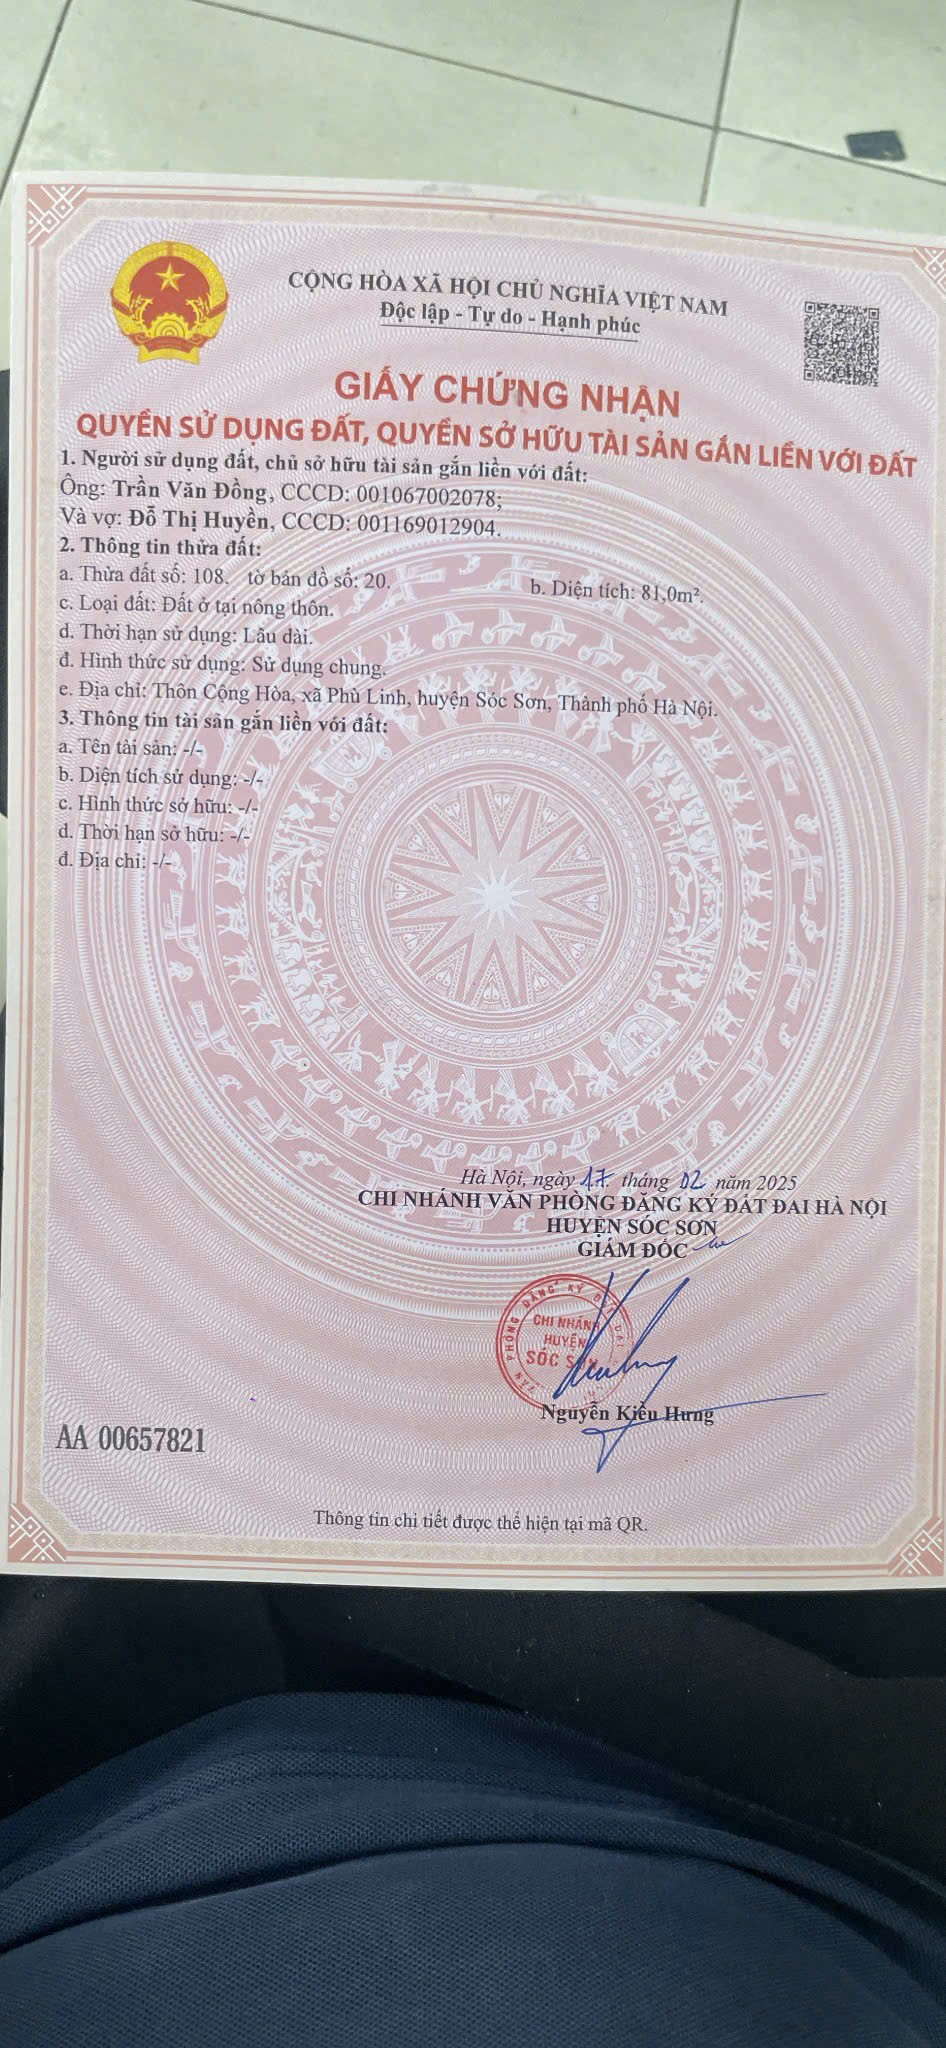 CỘNG HÒA XÃ HỘI CHỦ NGHĨA VIỆT NAM
Độc lập - Tự do - Hạnh phúc
GIẤY CHỨNG NHẬN
QUYỀN SỬ DỤNG ĐẤT, QUYỀN SỞ HỮU TÀI SẢN GẮN LIỀN VỚI ĐẤT
1. Người sử dụng đất, chủ sở hữu tài sản gắn liền với đất:
Ông: Trần Văn Đồng, CCCD: 001067002078;
Và vợ: Đỗ Thị Huyền, CCCD: 001169012904.
2. Thông tin thửa đất:
a. Thửa đất số: 108. tờ bản đồ số: 20. b. Diện tích: 81,0m².
c. Loại đất: Đất ở tại nông thôn.
d. Thời hạn sử dụng: Lâu dài.
đ. Hình thức sử dụng: Sử dụng chung.
e. Địa chỉ: Thôn Cộng Hòa, xã Phù Linh, huyện Sóc Sơn, Thành phố Hà Nội.
3. Thông tin tài sản gắn liền với đất:
a. Tên tài sản: -/-
b. Diện tích sử dụng: -/-
c. Hình thức sở hữu: -/-
d. Thời hạn sở hữu: -/-
đ. Địa chỉ: -/-
Hà Nội, ngày 17 tháng 02 năm 2025
CHI NHÁNH VĂN PHÒNG ĐĂNG KÝ ĐẤT ĐAI HÀ NỘI
HUYỆN SÓC SƠN
GIÁM ĐỐC
VĂN PHÒNG ĐĂNG KÝ ĐẤT ĐAI
CHI NHÁNH
HUYỆN
SÓC SƠN
Nguyễn Kiều Hưng
AA 00657821
Thông tin chi tiết được thể hiện tại mã QR.